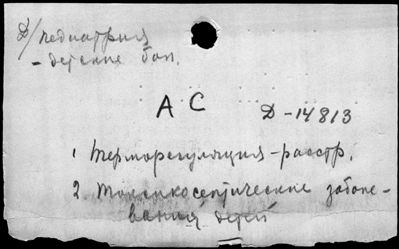 Д/педиатрия
- детские бол.
АС
Д-14813
1 Терморегуляция-расстр.
2 Токсикосептические заболе-
вания детей